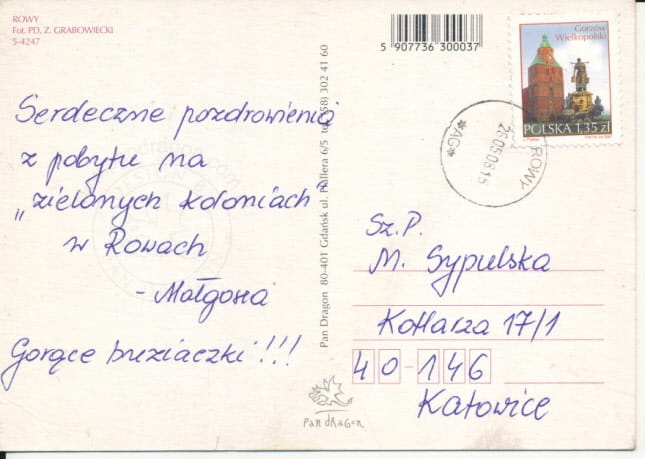 ROWY
Fot. PD, Z. GRABOWIECKI
5-4247
Serdeczne pozdrowienia
z pobytu na
„zielonych koloniach"
w Rowach
- Małgosia
Gorące buziaczki!!!
Pan Dragon 80-401 Gdańsk ul. Hallera 6/5 tel. (58) 302 41 60
5 907736 300037
Gorzów
Wielkopolski
POLSKA 1,35 zł
ROWY
26.05.08.15
*AG*
Sz. P.
M. Sypulska
Kotlarza 17/1
40-146
Katowice
Pan dRagon